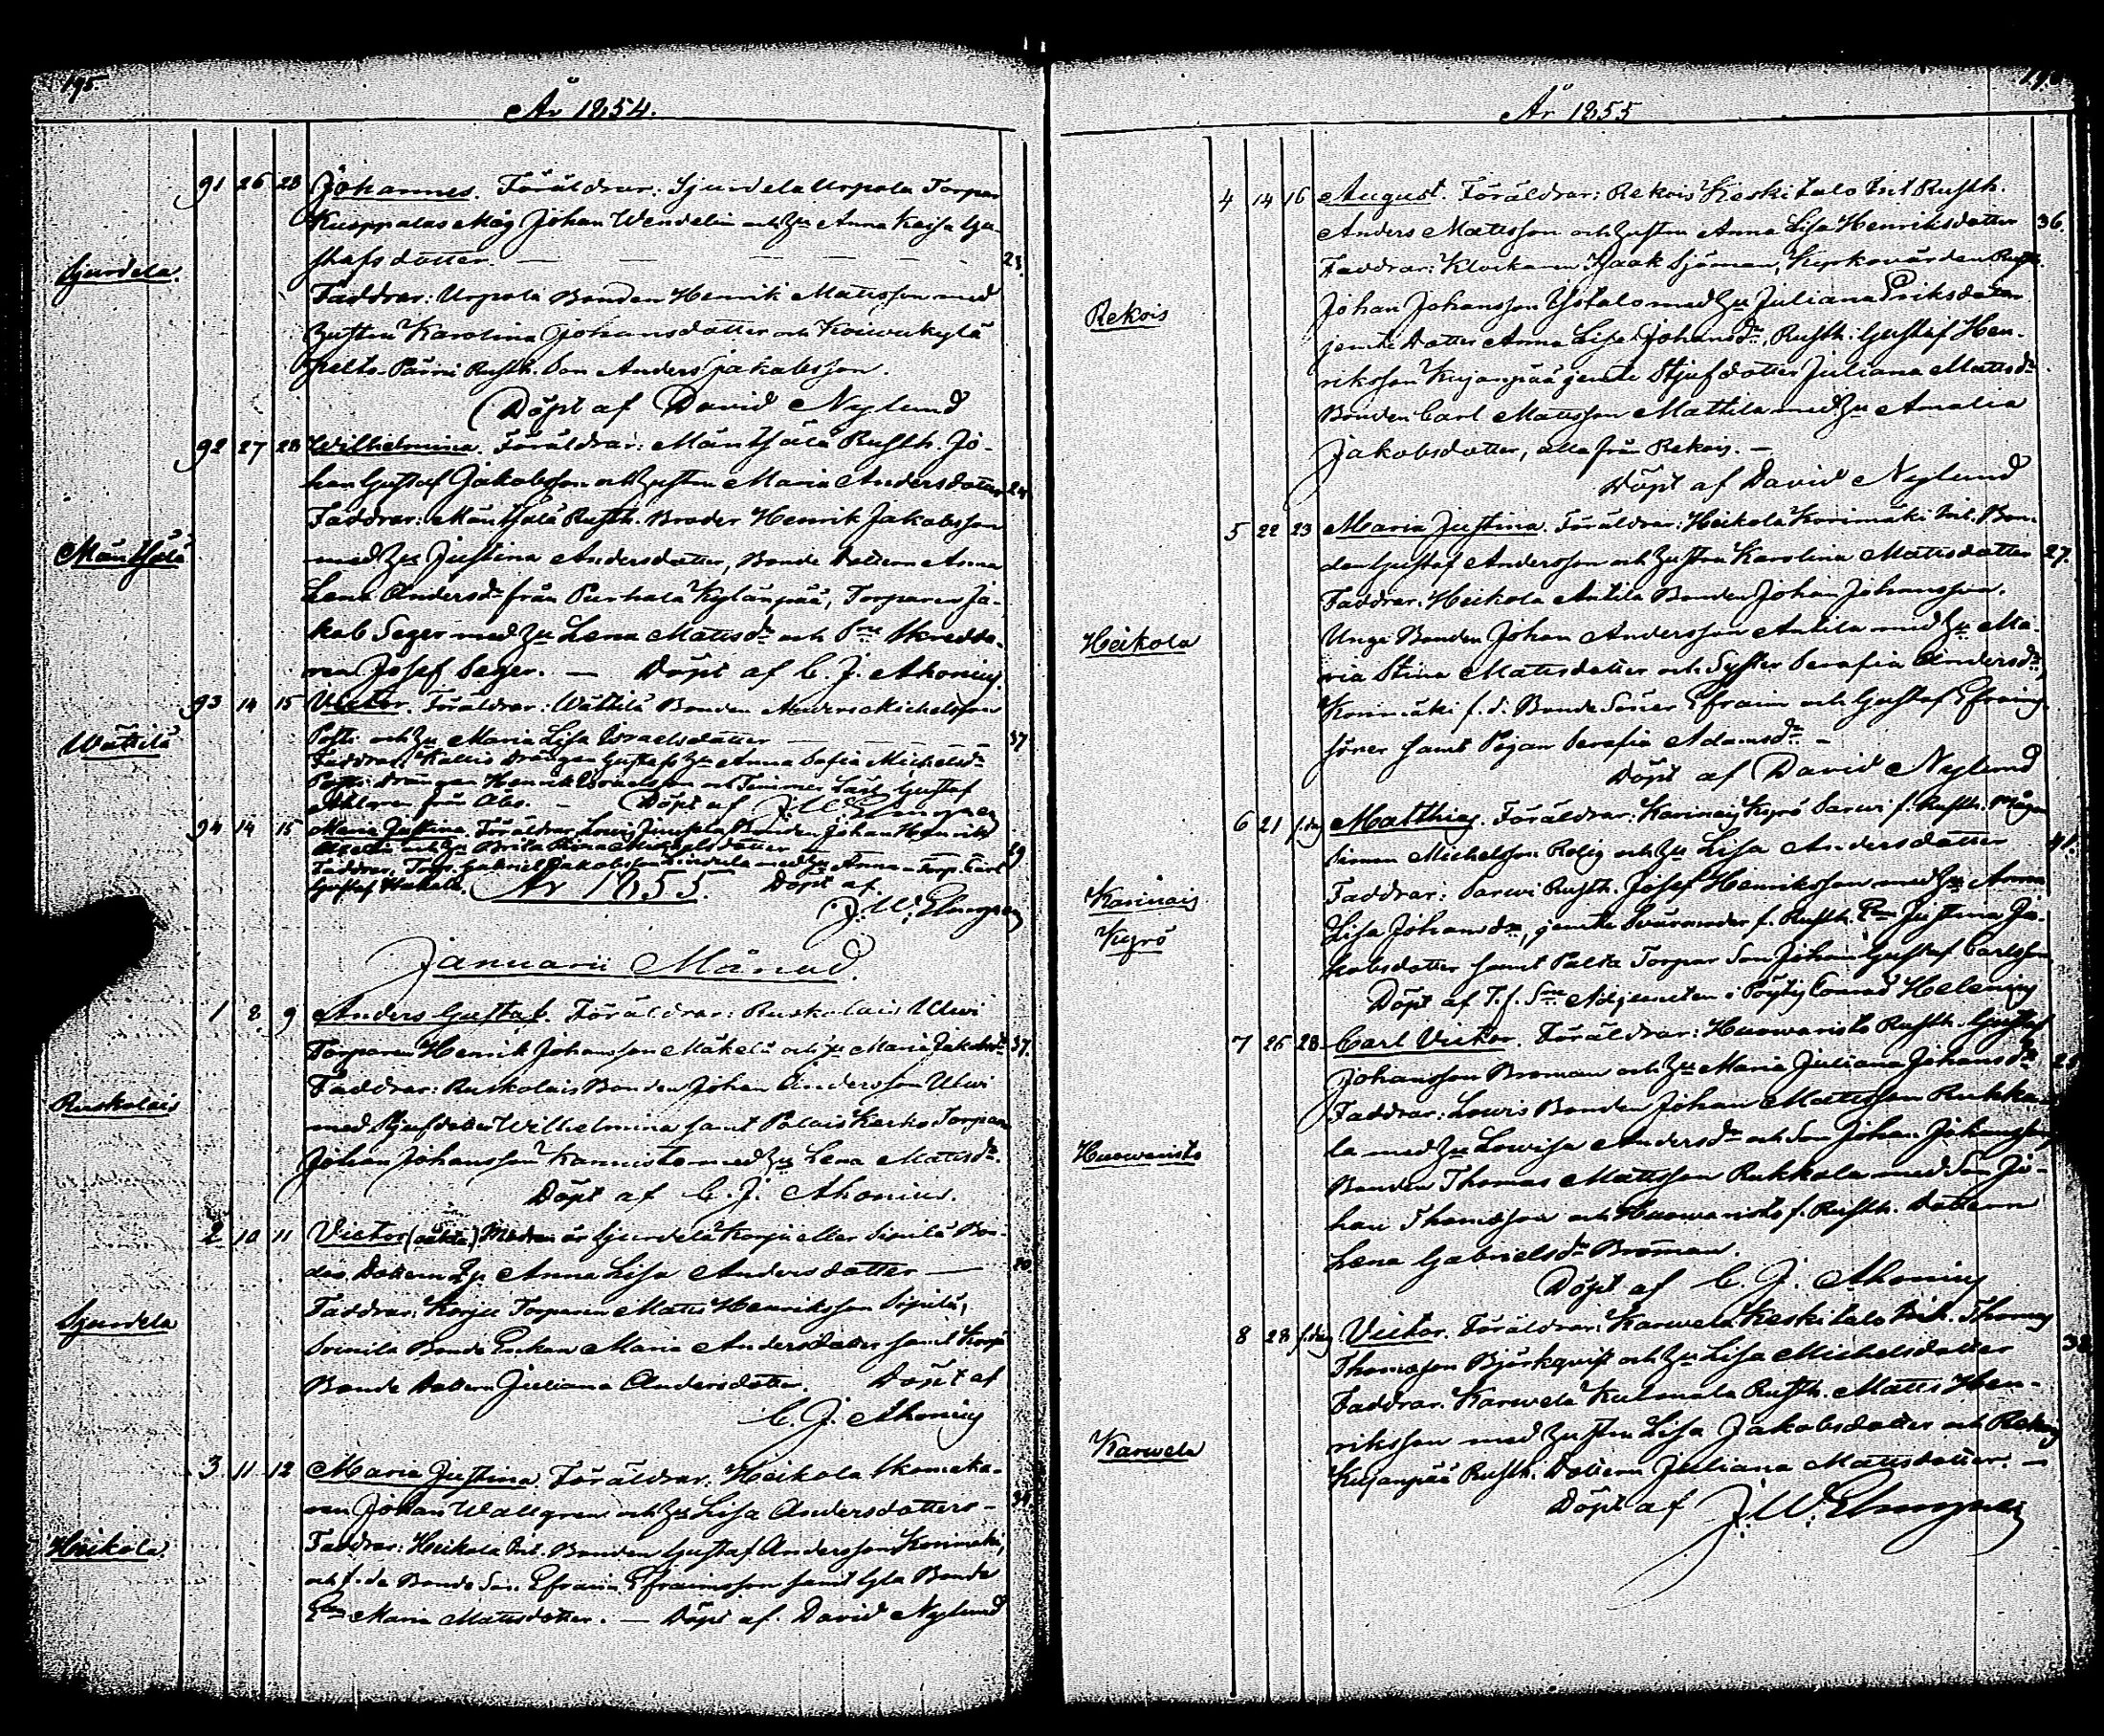 195.
År 1854.
91 26 28 Johannes. Föräldrar: Sjurdela Urpola Torpar
Kuoppalas Måg Johan Wendelin och Hu Anna Kaisa Gu-
stafsdotter. — — — — — 23.
Sjurdela.
Faddrar: Urpola Bonden Henrik Mattsson med
Hustru Karolina Johansdotter och Koiwukylä
Pelto-Pärri Rusth. Son Anders Jakobsson.
Döpt af David Nylund
92 27 28 Wilhelmina. Föräldrar: Mäntsälä Rusth. Jo-
han Gustaf Jakobsson och Hustru Maria Andersdotter 24
Faddrar: Mäntsälä Rusth. Broder Henrik Jakobsson
Mäntsälä
med Hu Justina Andersdotter, Bonde Dottern Anna
Lena Andersdr från Purhala Kylänpää, Torparen Ja-
kob Seger med Hu Lena Mattsdr och Skredda-
ren Josef Seger. — Döpt af C. J. Ahonius.
93 14 15 Victor. Föräldrar: Wättilä Bonden Anders Michelsson
Wättilä
och Hu Maria Lisa Israelsdotter — — — 37
Faddrar: Kallis Drängen Gustafs Hu Anna Sofia Michelsdr
drängen Henrik Israelsson och Timmer Gustaf
från Åbo. — Döpt af J. W. Elmgren
94 14 15 Maria Justina. Föräldrar Bonden Johan Henrik
och Hu Brita Stina Michelsdotter — 29
Faddrar Torp. Gabriel Jakobsson med Hu Anna – Torp. Carl
Gustaf Hakala. Döpt af
År 1855.
J. W. Elmgren
Januarii Månad.
1 8 9 Anders Gustaf. Föräldrar: Ruskolais Ulwi
Torparen Henrik Johansson Mäkelä och Hu Maria Jakobsdr 37.
Faddrar: Ruskolais Bonden Johan Andersson Ulwi
Ruskolais
med Stjufdotter Wilhelmina samt Palais Kerko Torparen
Johan Johansson Kannisto med Hu Lena Mattsdr.
Döpt af C. J. Ahonius.
2 10 11 Victor (oäkta) Modren är Sjurdela Korpi eller Sipilä Bon-
des Dottern Anna Lisa Andersdotter — 20.
Faddrar: Korpi Torparen Matts Henriksson Sipilä,
Sjurdela
Bonde Enkan Maria Andersdotter samt Korpi
Bonde Dottern Juliana Andersdotter. Döpt af
C. J. Ahonius
3 11 12 Maria Justina. Föräldrar. Heikola Skomaka-
ren Johan Wallgren och Hu Lisa Andersdotter –
Faddrar: Heikola Inh. Bonden Gustaf Andersson Korimäki,
Heikola.
och f. de Bonde Son. Efraim Efraimsson samt Bonde
Maria Mattsdotter. — Döpt af. David Nylund
År 1855
4 14 16 August. Föräldrar: Rekois Keskitalo Inh Rusth.
Anders Mattsson och Hustru Anna Lisa Henriksdotter 36.
Faddrar: Klockaren Isaak Sjöman, Kyrkovärden Rusth.
Rekois
Johan Johansson Ylitalo med Hu Juliana Eriksdotter
jemte Dotter Anna Lisa Johansdr, Rusth. Gustaf Hen-
riksson Kujanpää jemte Stjufdotter Juliana Mattsdr
Bonden Carl Mattsson Mattila med Hu Amalia
Jakobsdotter, alla från Rekois. —
Döpt af David Nylund
5 22 23 Maria Justina. Föräldrar: Heikola Korimäki Inh. Bon-
den Gustaf Andersson och Hustru Karolina Mattsdotter 27.
Faddrar. Heikola Antila Bonden Johan Johansson.
Heikola
Unge Bonden Johan Andersson Antila med Hu Ma-
ria Stina Mattsdotter och Syster Serafia Andersdr,
Korimäki f. d. Bonde Söner Efraim och Gustaf Efraims
söner samt Pigan Serafia Adamsdr. –
Döpt af David Nylund
6 21 s.dag Matthias. Föräldrar: Karinais Kyrö Sarwi f. Rusth. Mågen
Simon Michelsson Rolig och Hu Lisa Andersdotter 41.
Karinais
Kyrö
Faddrar: Sarwi Rusth. Josef Henriksson med Hu Anna
Lisa Johansdr, jemte Svärmoder f. Rusth. Justina Ja-
kobsdotter samt Palta Torpar Son Johan Gustaf Carlsson
Döpt af T. f. Sme Adjuncten i Pöytis Conrad Helenius
7 26 28 Carl Victor. Föräldrar: Huowaristo Rusth. Gustaf
Johansson Broman och Hu Maria Juliana Johansdr
Faddrar: Lowis Bonden Johan Mattsson Rukka-
Huowaristo
la med Hu Lowisa Andersdr och Son Johan Johansson
Bonden Thomas Mattsson Rukkala med Son Jo-
han Thomasson och Huowaristo f. Rusth. Dottern
Lena Gabrielsdr Broman.
Döpt af C. J. Ahonius
8 28 s.dag Victor. Föräldrar: Karwela Keskitalo Inh. Thomas
Thomasson Björkqvist och Hu Lisa Michelsdotter 38.
Faddrar. Karwela Kulmala Rusth. Matts Hen-
Karwela
riksson med Hustru Lisa Jakobsdotter och Rekois
Kujanpää Rusth. Dottern Juliana Mattsdotter. —
Döpt af J. W. Elmgren